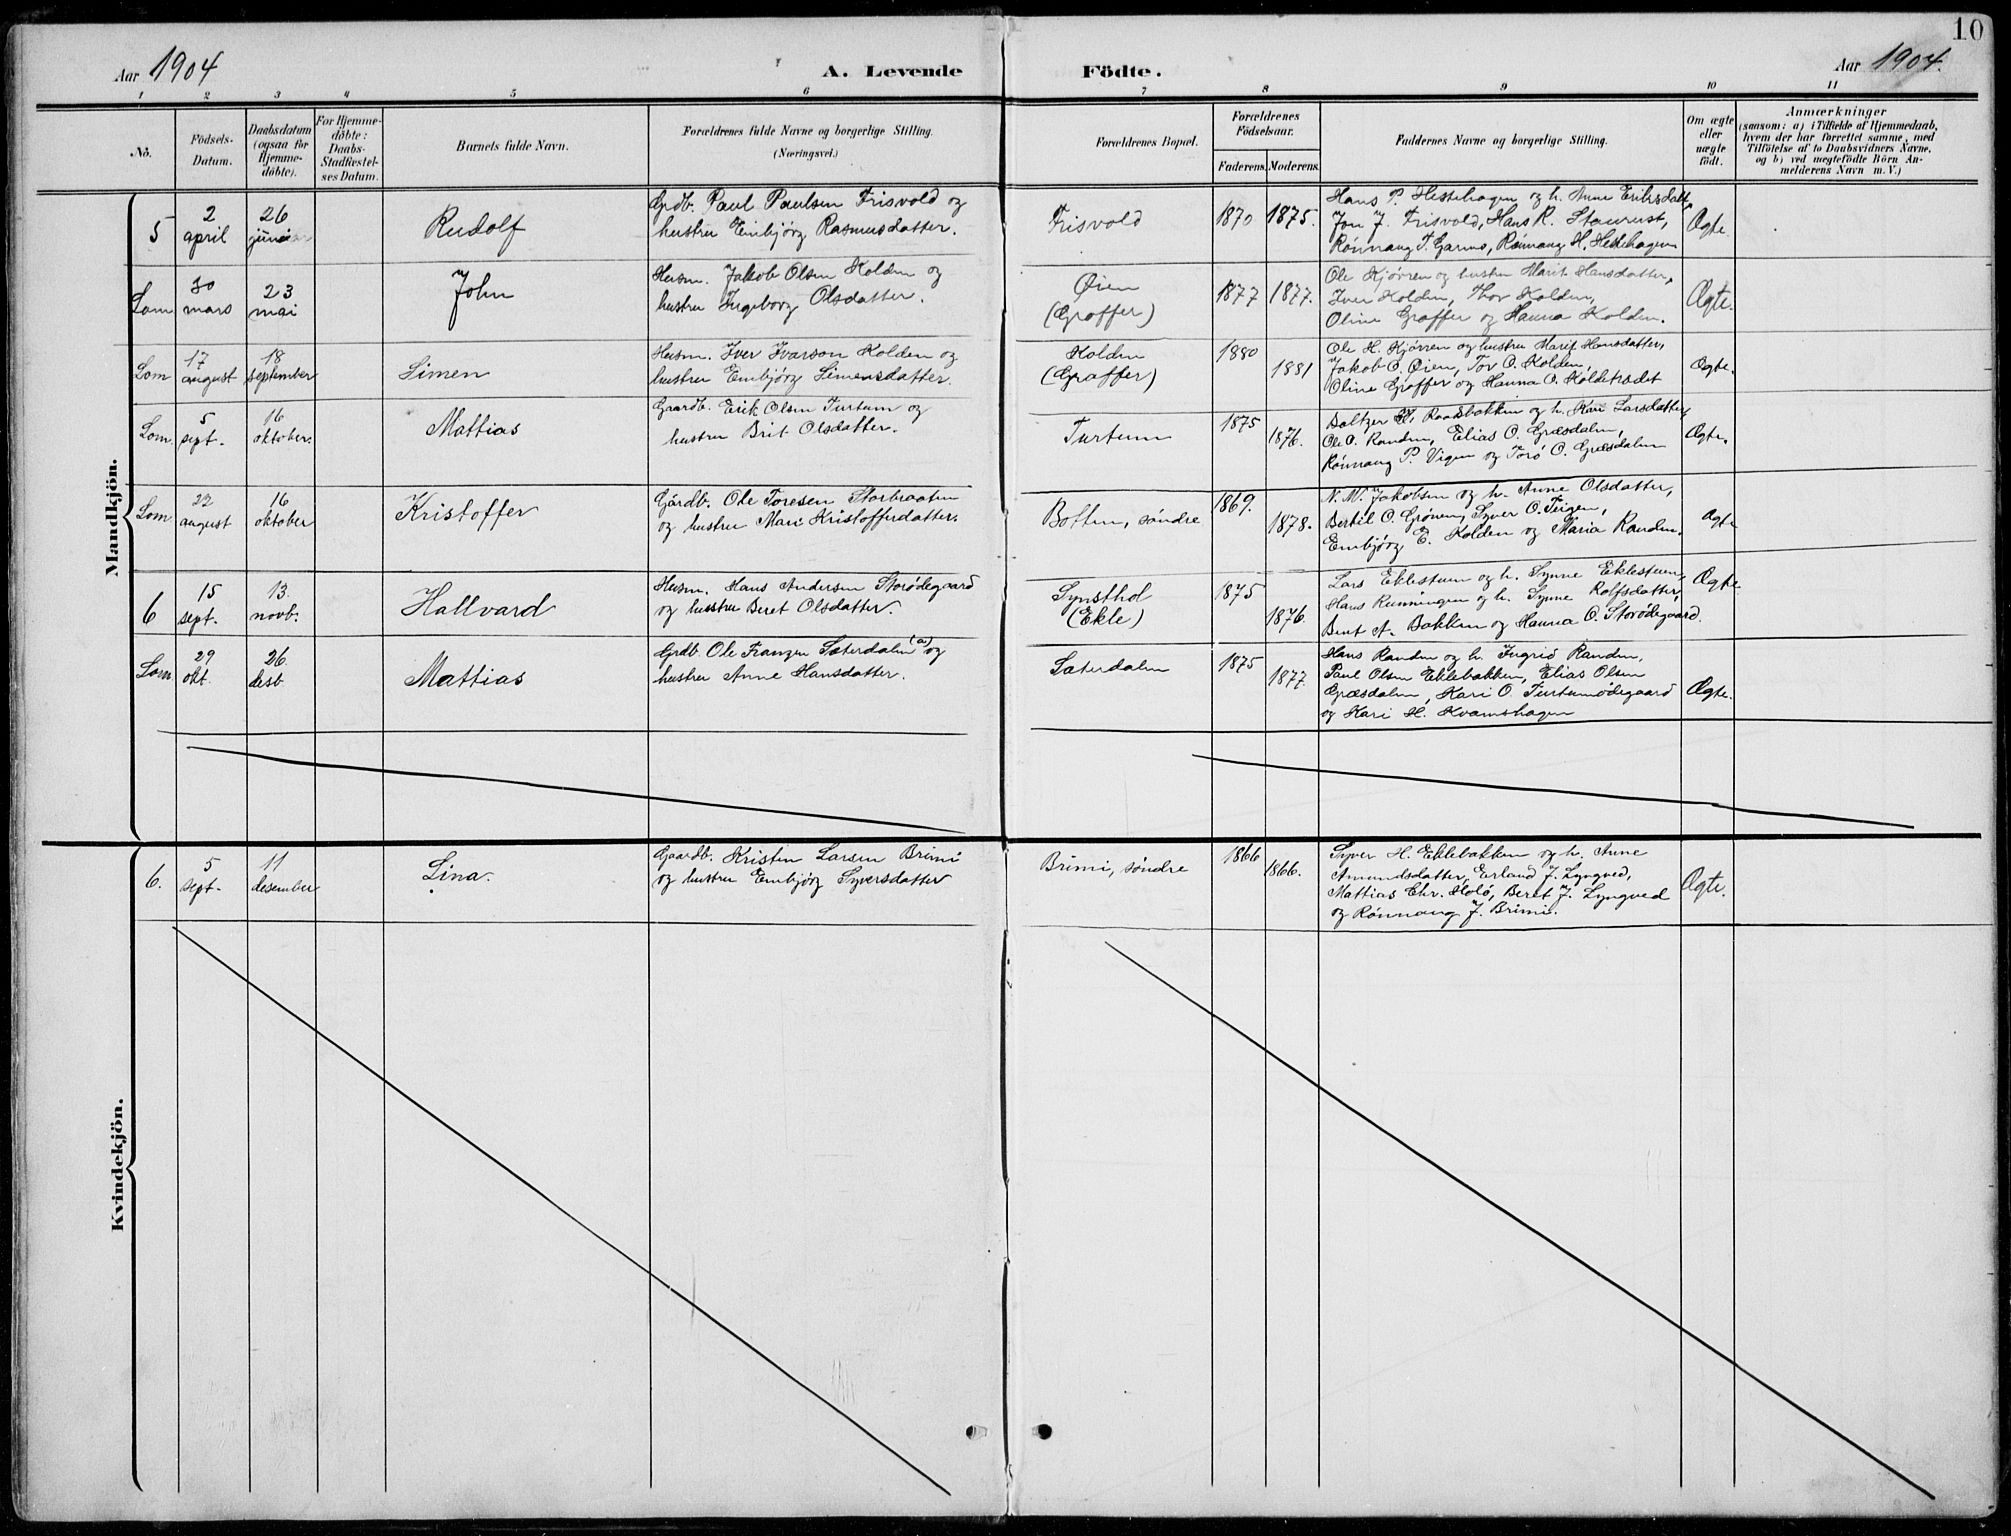 10
Aar 1904
A. Levende
Födte.
Aar 1904.
1 2 3 4 5 6 7 8 9 10 11
No.
Födsels-
Datum.
Daabsdatum
(ogsaa för
Hjemme-
döbte).
For Hjemme-
döbte:
Daabs-
Stadfæstel-
ses Datum.
Barnets fulde Navn.
Forældrenes fulde Navne og borgerlige Stilling.
(Næringsvei.)
Forældrenes Bopæl.
Forældrenes
Födselsaar.
Faderens. Moderens.
Faddernes Navne og borgerlige Stilling.
Om ægte
eller
uægte
födt.
Anmærkninger
(saasom: a) i Tilfælde af Hjemmedaab,
hvem der har forrettet samme, med
Tilföielse af to Daabsvidners Navne,
og b) ved uægtefödte Börn An-
melderens Navn m. V.)
Mandkjön.
5
2
april
26
juni
Rudolf
Grdb. Paul Paulsen Frisvold og
hustru Embjørg Rasmusdatter.
Frisvold
1870
1875.
Hans P. Hestehagen og h. Anne Eriksdatt
Jon J. Frisvold, Hans R. Staurust,
Rønnaug T. Garmo, Rønnaug H. Hestehagen
Ægte.
Lom
30
mars
23
mai
John
Husm. Jakob Olsen Kolden og
hustru Ingeborg Olsdatter.
Øien
(Graffer)
1877
1877.
Ole Kjørren og hustru Marit Hansdatter,
Iver Kolden, Thor Kolden,
Oline Graffer og Hanna Kolden.
Ægte.
Lom
17
august
18
september
Simen
Husm. Iver Ivarson Kolden og
hustru Embjørg Simensdatter.
Kolden
(Graffer)
1880
1881
Ole H. Kjørren og hustru Marit Hansdatter,
Jakob O. Øien, Tor O. Kolden,
Oline Graffer og Hanna O. Koldetrædet
Ægte.
Lom
5
sept.
16
oktober.
Mattias
Gaardb. Erik Olsen Turtum og
hustru Brit Olsdatter.
Turtum
1875
1876.
Baltzer Raadsbakken og h. Kari Larsdatter,
Ole O. Randen, Elias O. Græsdalen,
Rønnaug P. Vigen og Torø O. Græsdalen
Ægte.
Lom
22
august
16
oktober
Kristoffer
Gårdb. Ole Toresen Storbraaten
og hustru Mari Kristofferdatter.
Botten, søndre
1869.
1878.
N. M. Jakobsen og h. Anne Olsdatter,
Bertil O. Grønen, Syver O. Teigen,
Embjørg E. Kolden og Maria Randen.
Ægte
6
15
sept.
13.
novb.
Hallvard
Husm. Hans Andersen Storødegaard
og hustru Beret Olsdatter.
Synsthol
(Ekle)
1875
1876.
Lars Eklestuen og h. Synne Eklestuen,
Hans Runningen og h. Synne Rolfsdatter,
Beret A. Bakken og Hanna O. Storødegaard.
Ægte
Lom.
29
okt.
26.
desb.
Mattias
Grdb. Ole Franzen Sæterdalen (a) og
hustru Anne Hansdatter.
Sæterdalen
1875
1877.
Hans Randen og h. Ingrid Randen,
Paul Olsen Eklebakken, Elias Olsen
Græsdalen, Kari O. Turtumødegaard
og Kari H. Kvamshagen
Ægte.
Kvindekjön.
6.
5
sept.
11
desember
Lina.
Gaardb. Kristen Larsen Brimi
og hustru Embjørg Syversdatter
Brimi, søndre
1866
1866.
Syver H. Eklebakken og h. Anne
Amundsdatter, Erland J. Lyngved,
Mattias Chr. Holø, Beret J. Lyngved
og Rønnaug J. Brimi.
Ægte.